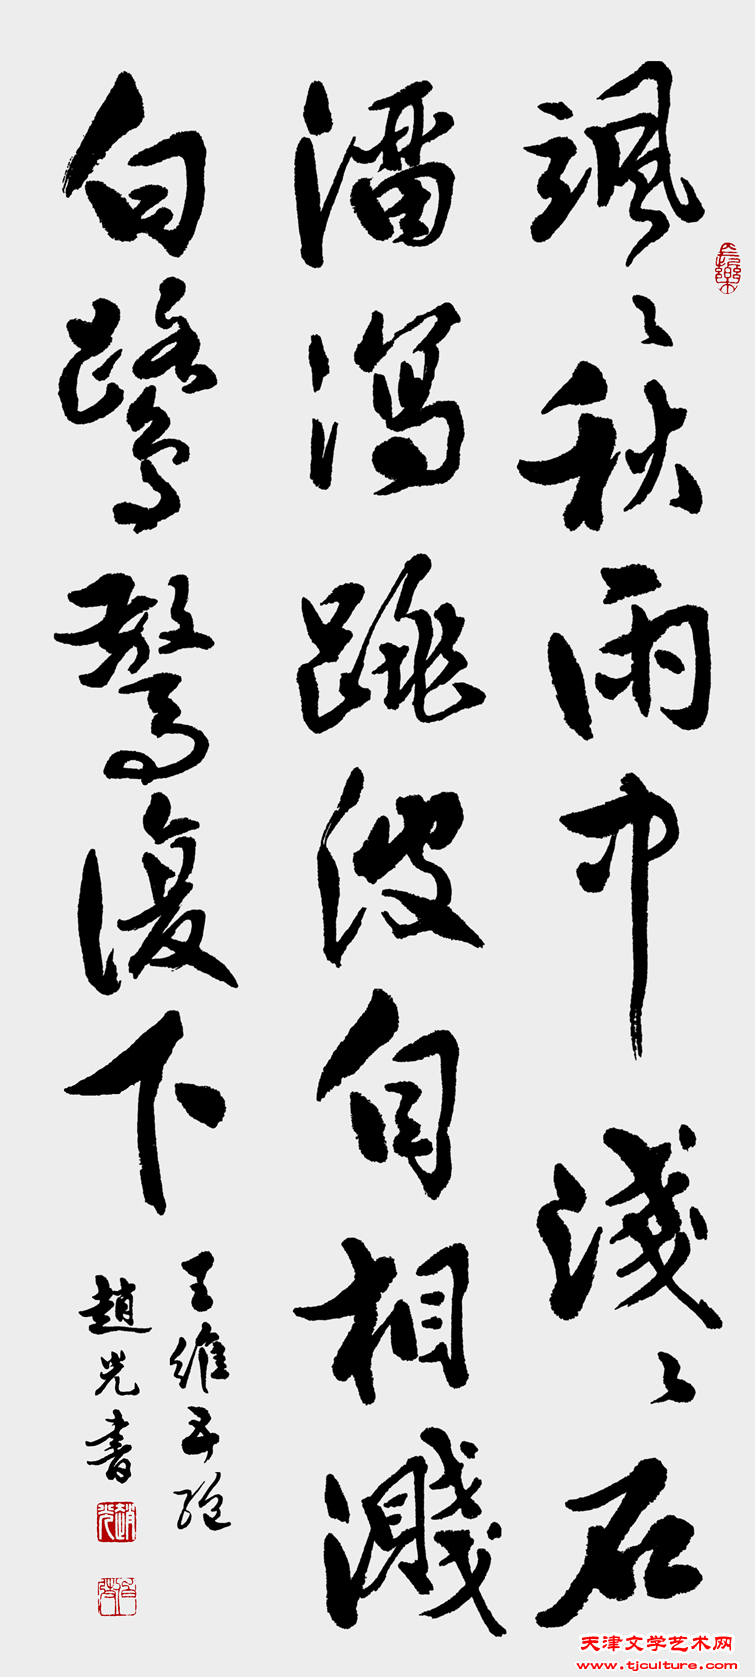 颯〻秋雨中淺〻石
溜瀉跳波自相濺
白鷺驚復下
王維五絕
趙光書
長樂
天津文学艺术网
www.tjculture.com